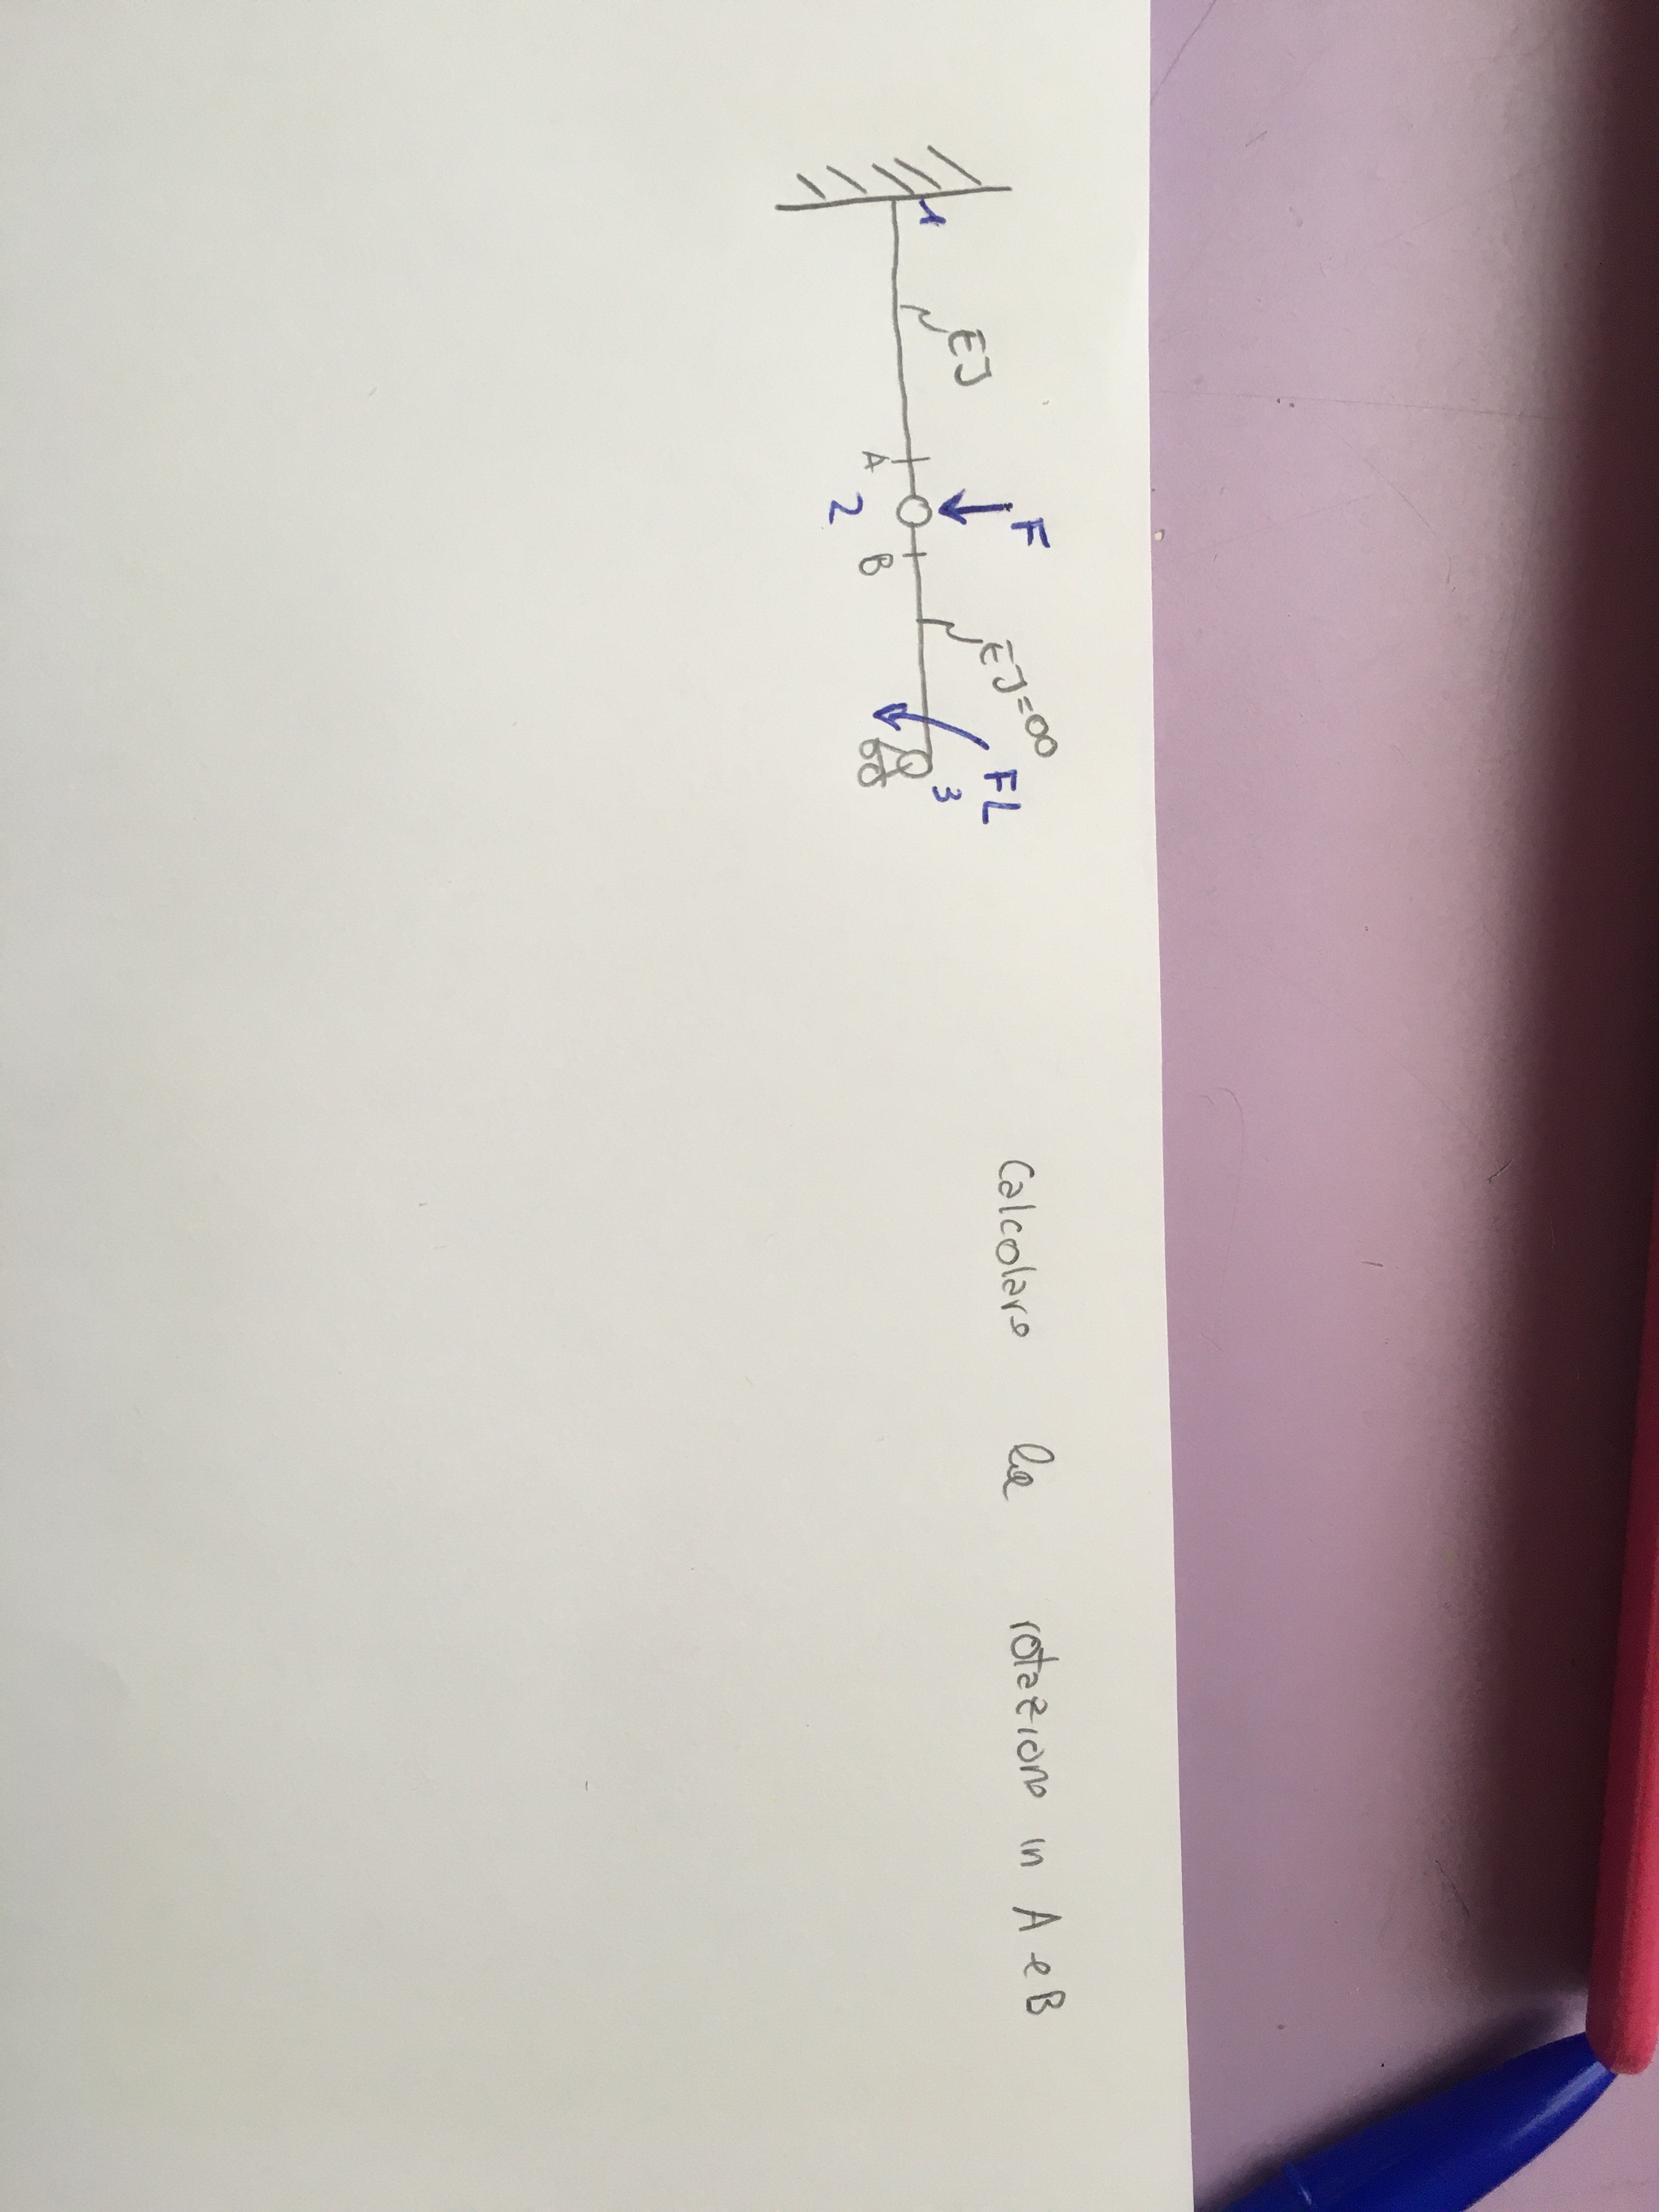 1
EJ
A
2
F
B
EJ=∞
FL
3
Calcolare le rotazioni in A e B